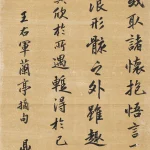 或取諸懷抱悟言一
浪形骸之外雖趣
其欣於所遇暫得於己
王右軍蘭亭摘句